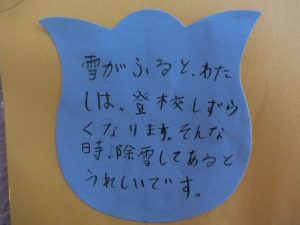 雪がふると、わた
しは、登校しずら
くなります。そんな
時、除雪してあると
うれしいです。